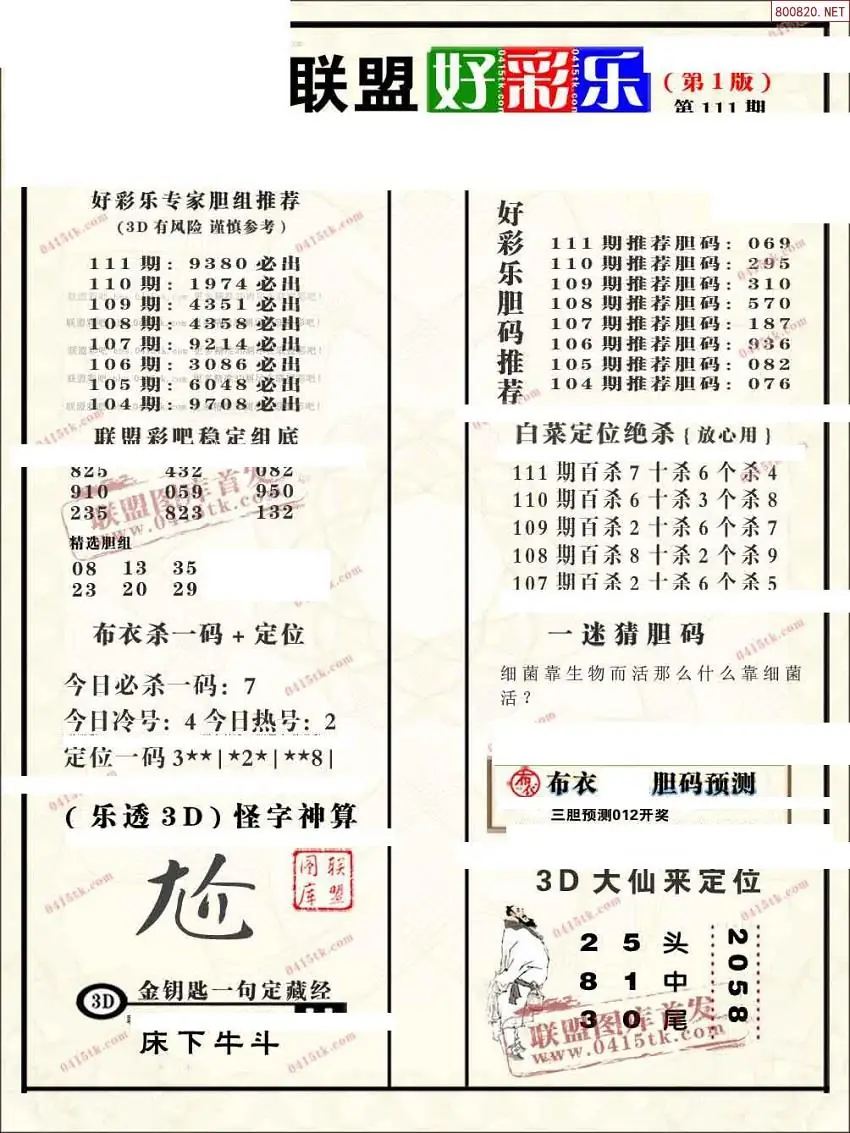 800820.NET
联盟好彩乐
(第1版)
第111期
好彩乐专家胆组推荐
(3D有风险 谨慎参考)
111期: 9380必出
110期: 1974必出
109期: 4351必出
108期: 4358必出
107期: 9214必出
106期: 3086必出
105期: 6048必出
104期: 9708必出
联盟彩吧稳定组底
825 432 082
910 059 950
235 823 132
精选胆组
08 13 35
23 20 29
布衣杀一码+定位
今日必杀一码: 7
今日冷号: 4 今日热号: 2
定位一码3**|*2*|**8|
(乐透3D)怪字神算
尬
联盟图库
3D
金钥匙一句定藏经
床下牛斗
好彩乐胆码推荐
111期推荐胆码: 069
110期推荐胆码: 295
109期推荐胆码: 310
108期推荐胆码: 570
107期推荐胆码: 187
106期推荐胆码: 936
105期推荐胆码: 082
104期推荐胆码: 076
白菜定位绝杀{放心用}
111期百杀7十杀6个杀4
110期百杀6十杀3个杀8
109期百杀2十杀6个杀7
108期百杀8十杀2个杀9
107期百杀2十杀6个杀5
一迷猜胆码
细菌靠生物而活那么什么靠细菌
活?
布衣 胆码预测
三胆预测012开奖
3D大仙来定位
2 5 头
8 1 中
3 0 尾
2058
联盟图库首发
www.0415tk.com
0415tk.com